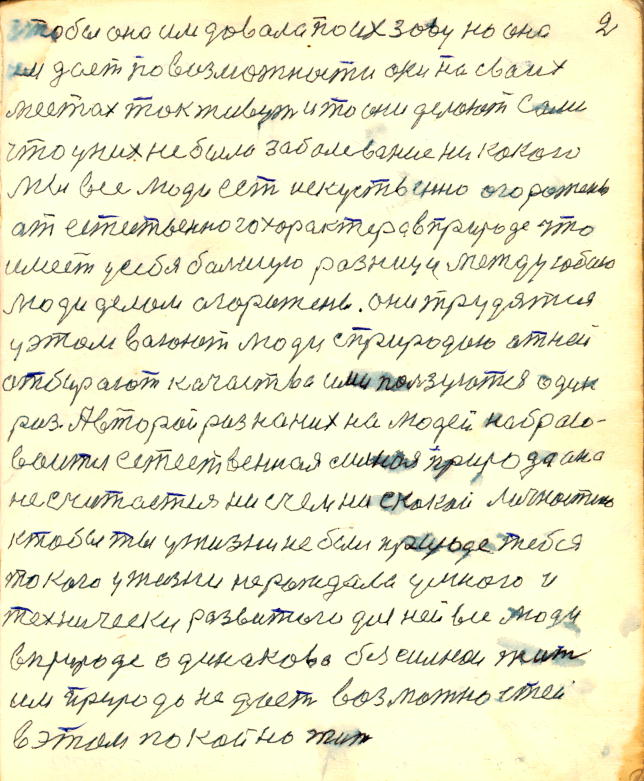 чтобы она им довала по их зову но она 2
им дает по возможности они на своих
местах так живут и то они делают сами
что у них не было заболевание никокого
Мы все люди есть искуственно огорожены
от естественного характера в природе что
имеет у себя большую разницу между собою
люди делом огорожены. они трудятся
у этом ваюют люди с природою от ней
отбирают качества ими ползуются один
раз. А второй раз на них на людей набрасо-
ваиться естественная силная природа она
не считается ни с чем ни с какой личностью
кто бы ты у жизни не был природе тебя
такого у жизни нарождала умного и
технически развитого для ней все люди
в природе одинаково бессилной жит
им природа не дает возможностей
в этом покойно жит